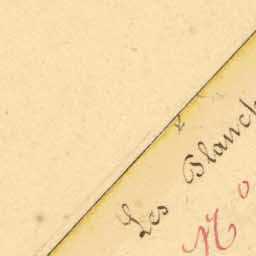 Les Blanch
Mo